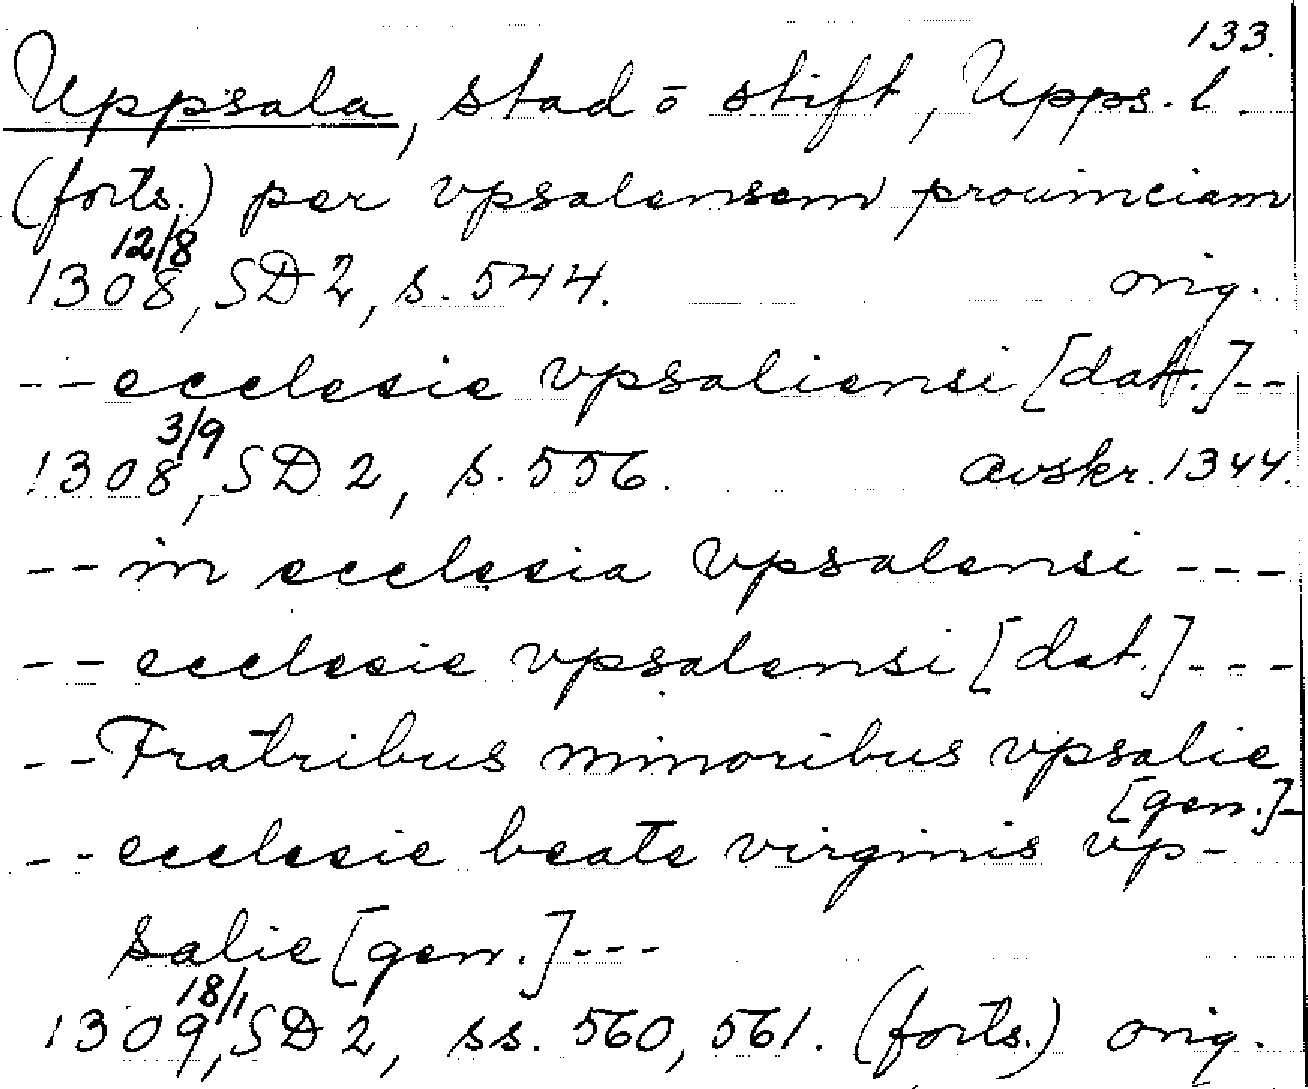 133.
Uppsala, stad o stift, Upps. l.
(forts.) per vpsalensem prouinciam
1308 12/8, SD 2, s. 544. orig.
-- ecclesie vpsaliensi [dat.]--
1308 3/9, SD 2, s. 556. avskr. 1344.
-- in ecclesia vpsalensi ---
-- ecclesie vpsalensi [dat.]---
-- Fratribus minoribus vpsalie
[gen.]-
-- ecclesie beate virginis vp-
salie [gen.]---
1309 18/1, SD 2, ss. 560, 561. (forts.) orig.